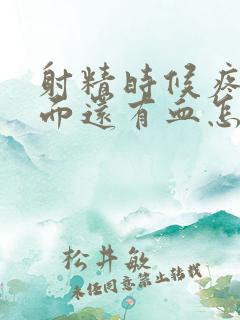 射精時候疼
而還有血怎
松井敏
未经同意禁止转载